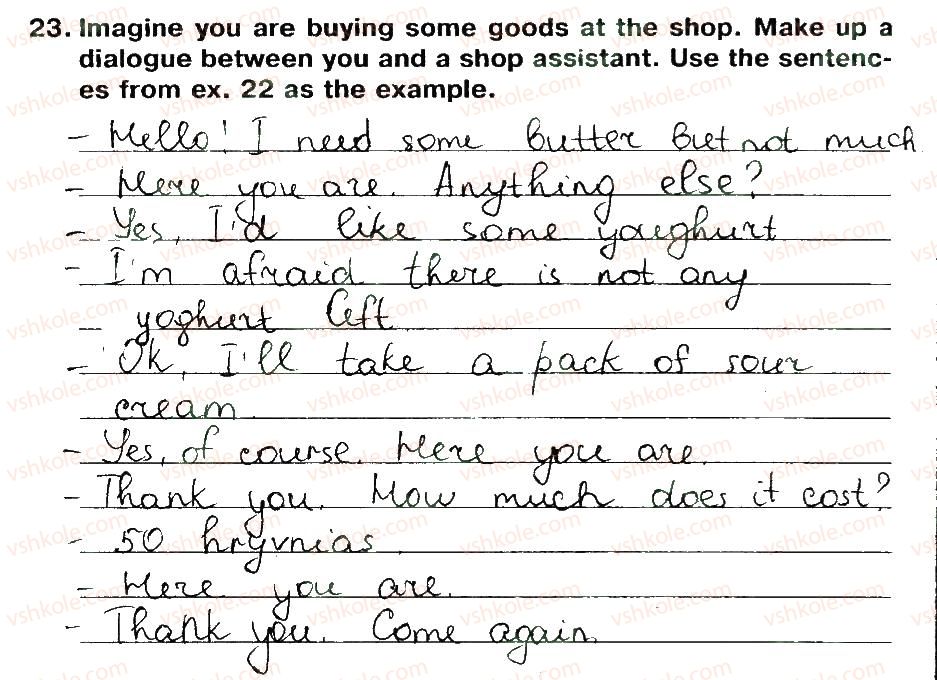 23. Imagine you are buying some goods at the shop. Make up a
dialogue between you and a shop assistant. Use the sentenc-
es from ex. 22 as the example.
- Hello! I need some butter but not much
- Here you are. Anything else?
- Yes, I'd like some youghurt
- I'm afraid there is not any
yoghurt left
- Ok, I'll take a pack of sour
cream.
- Yes, of course. Here you are.
- Thank you. How much does it cost?
- 50 hryvnias.
- Here you are.
- Thank you. Come again.